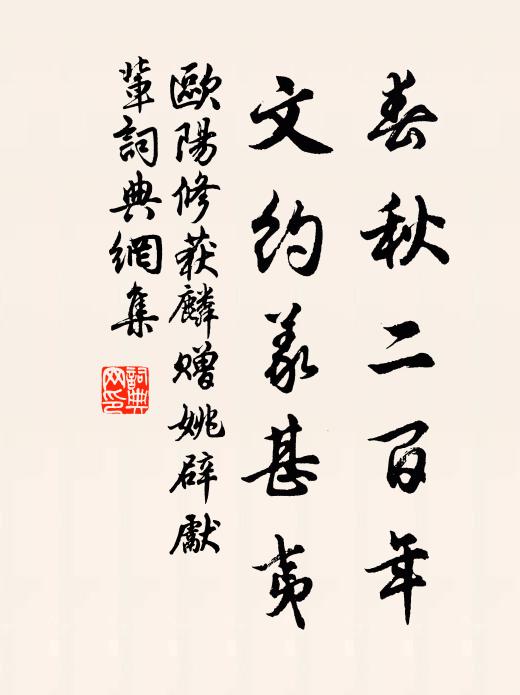 春秋二百年
文約義甚夷
歐陽修获麟赠姚辟獻
軰詞典網集
詞典
网印